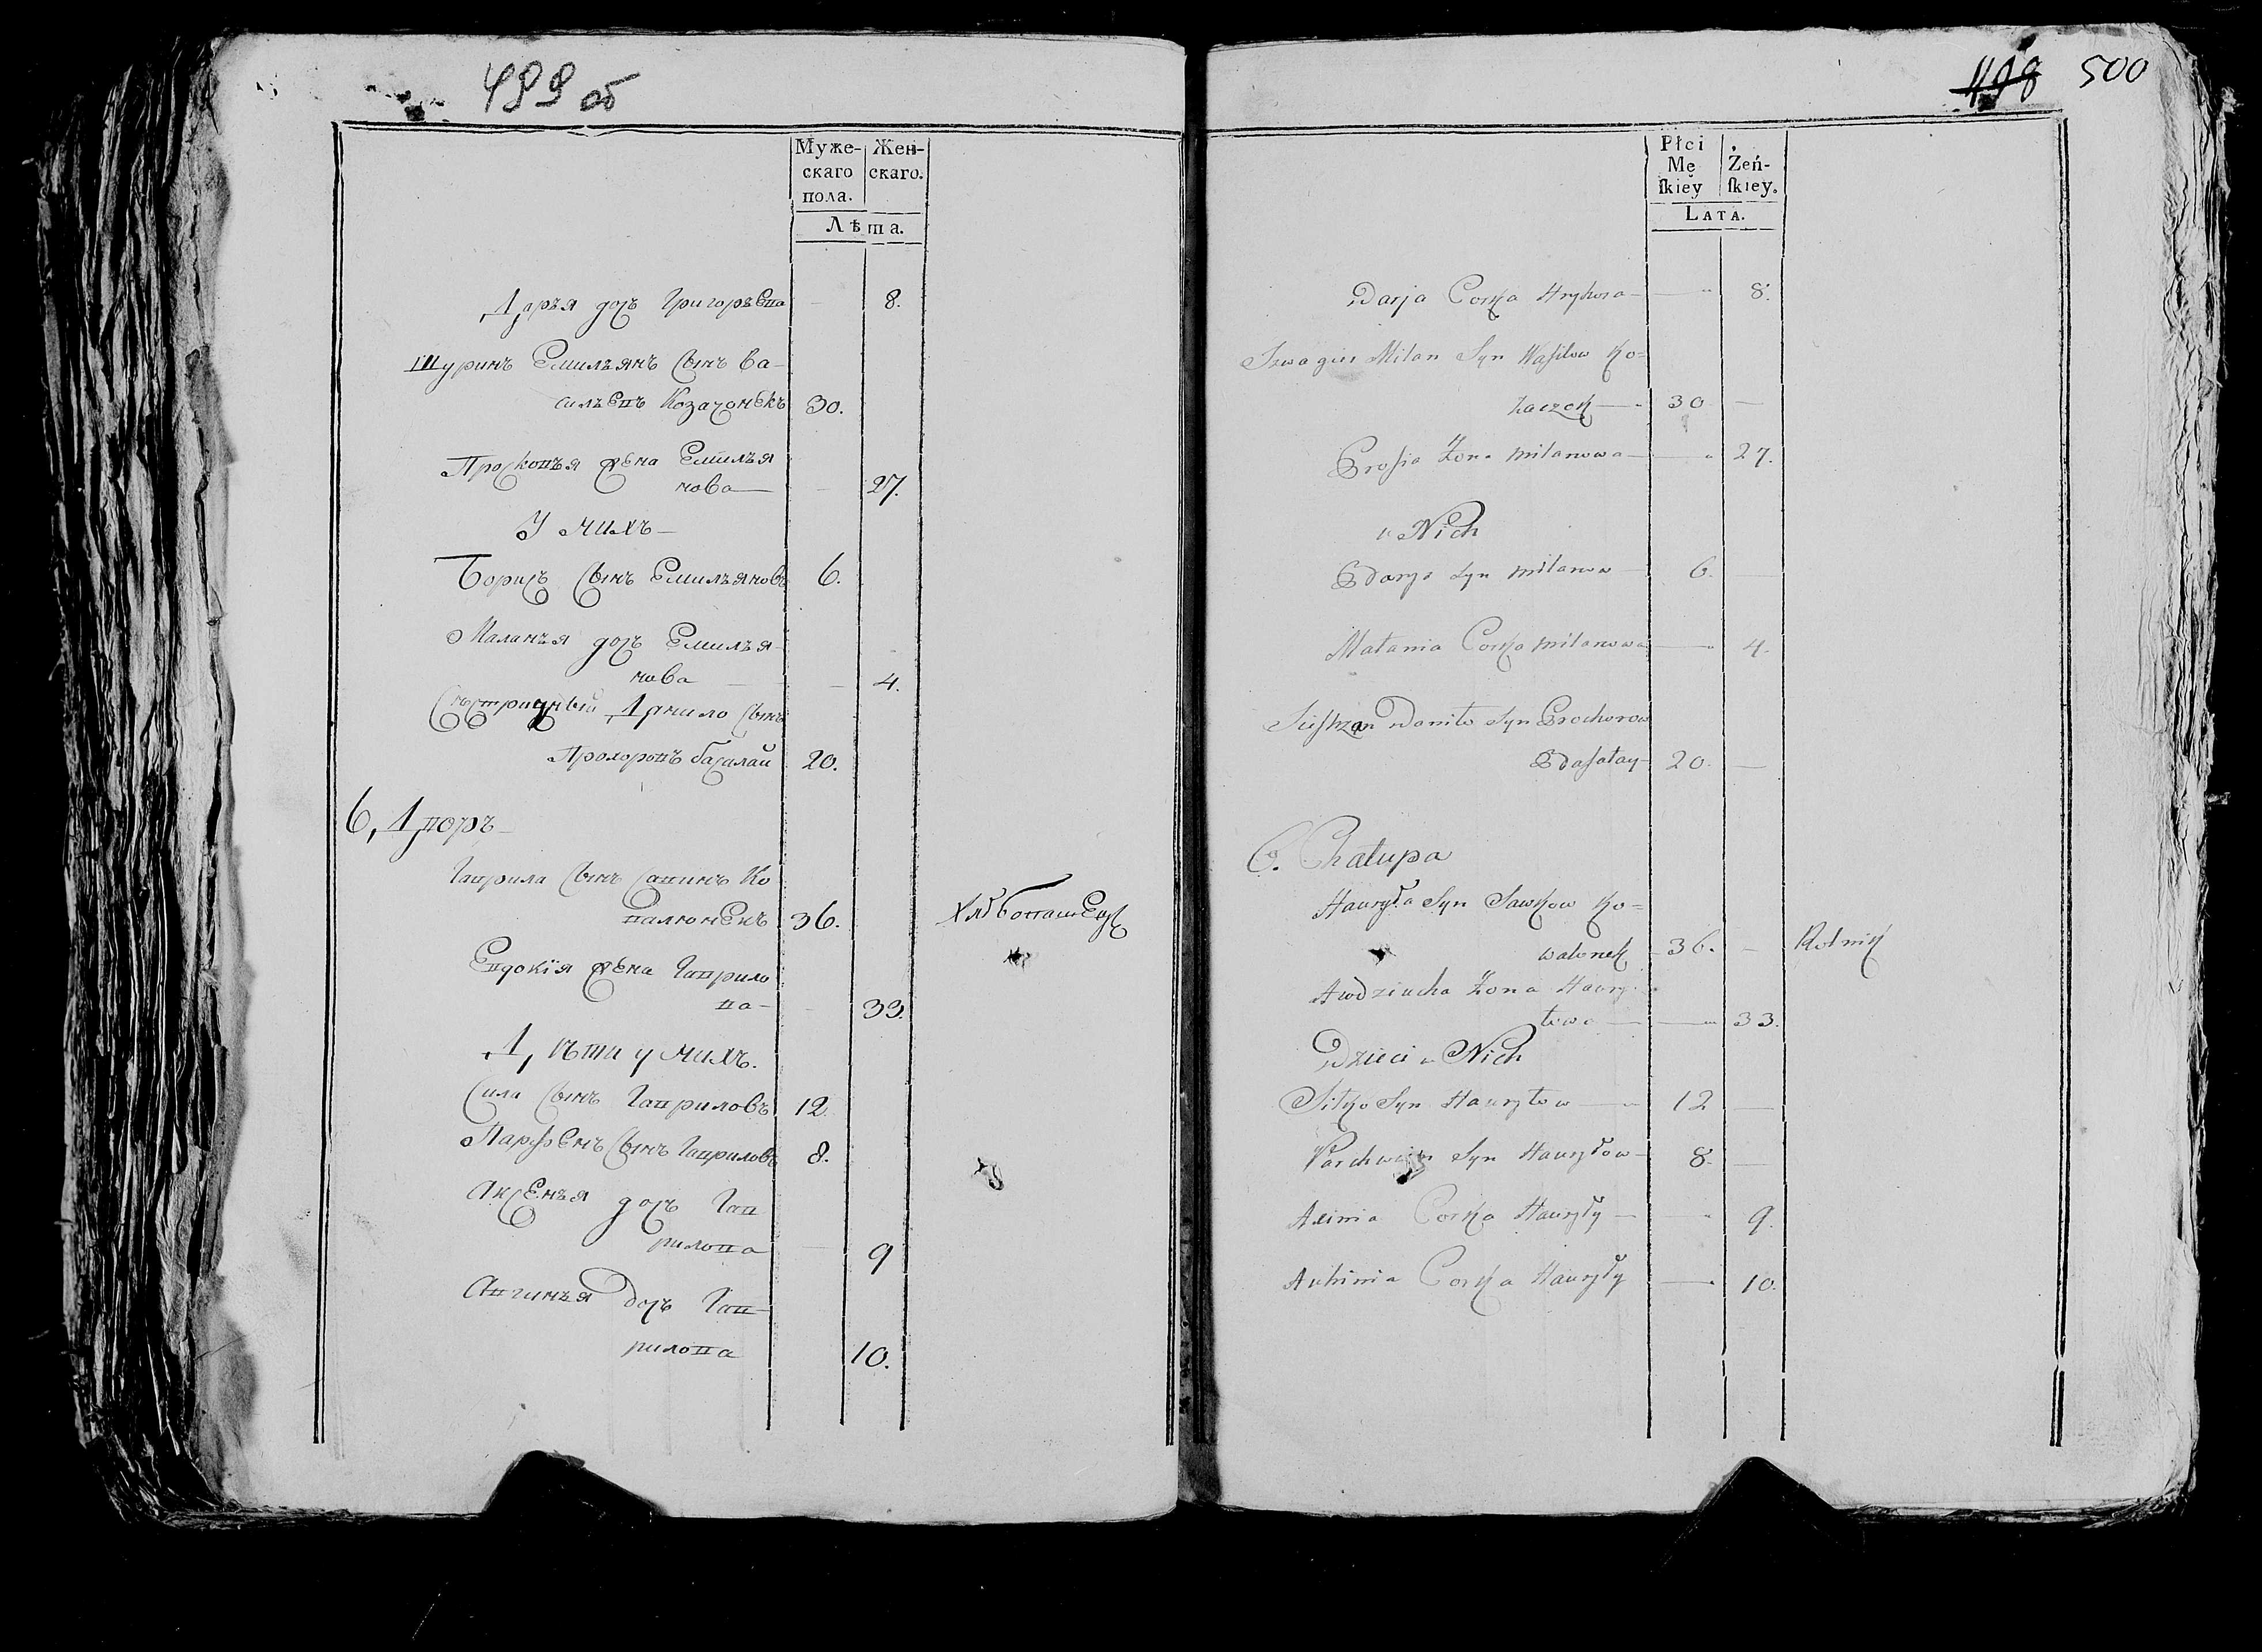 499 об
Муже-
скаго
пола.
Жен-
скаго.
Лѣта.
Дарья дочь Григорьева — 8.
Шуринъ Емильянъ сынъ Ва-
сильевъ Козачонекъ 30.
Проскопья жена Емилья
нова — 27.
У нихъ —
Борисъ сынъ Емильяновъ 6.
Маланья дочь Емилья-
нова — 4.
Сѣстричный Данило сынъ
Прохоровъ басалай 20.
6, Дворъ —
Гаврила сынъ Савинъ Ко
валюнекъ 36. Хлѣбопашецъ
Евдокія жена Гаврило
ва — 33.
Дѣти у нихъ.
Сила сынъ Гавриловъ 12.
Парфенъ сынъ Гавриловъ 8.
Аксенья дочь Гав
рилова — 9
Авгинья дочь Гав-
рилова 10.
498 500
Płci
Mę
ſkiey
Żeń-
ſkiey.
LATA.
Darja Corka Hryhora — 8.
Szwagier Milan Syn Waſilow Ko=
zaczek — 30 —
Prosia Żona Milanowa — 27.
u Nich
Borys Syn Milanow 6. —
Małania Corka Milanowa — 4.
Siestrzan Daniło Syn Prochorow
Basałay — 20. —
6. Chałupa
Hauryła Syn Sawkow Ko=
walonek 36. — Rolnik
Awdziucha Żona Haury-
łowa — 33.
Dzieci u Nich
Siłko Syn Hauryłow — 12 —
Parchwien Syn Hauryłow — 8. —
Axinia Corka Hauryły — 9.
Auhinia Corka Hauryły — 10.